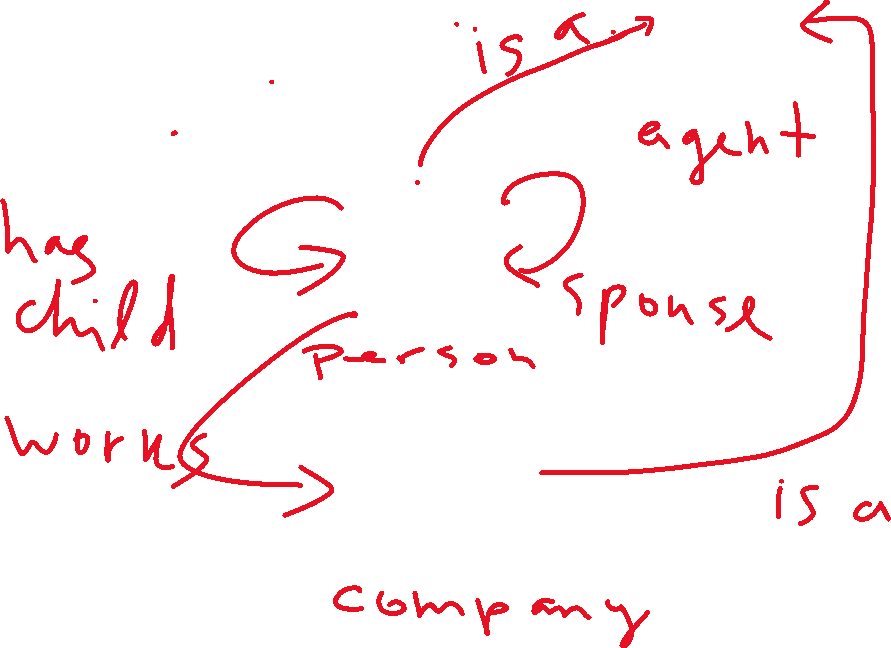 is a
agent
has
child
spouse
person
works
is a
company